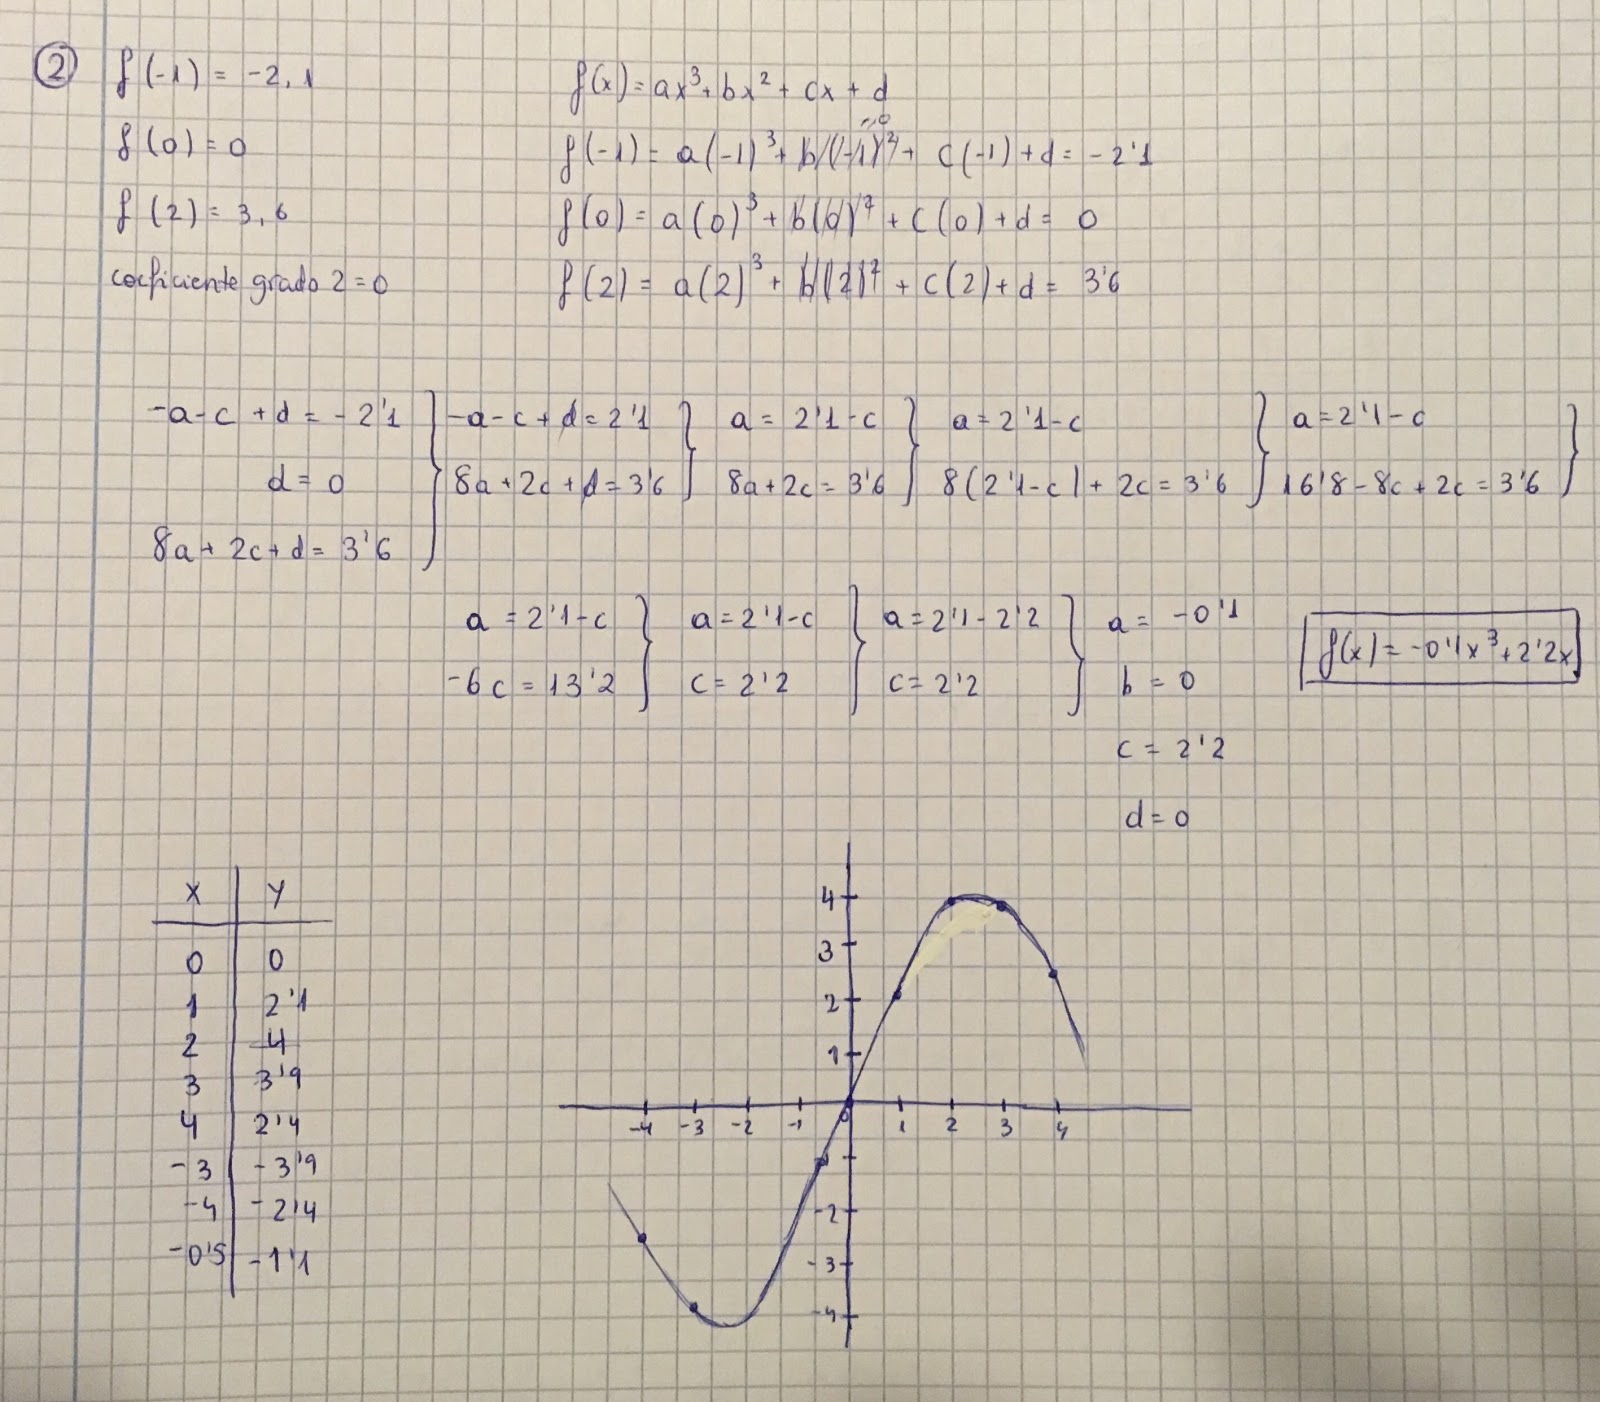 2
f(-1) = -2,1
f(0) = 0
f(2) = 3,6
coeficiente grado 2 = 0
f(x) = ax³ + bx² + cx + d
=0
f(-1) = a(-1)³ + b(-1)² + c(-1) + d = -2'1
f(0) = a(0)³ + b(0)² + c(0) + d = 0
f(2) = a(2)³ + b(2)² + c(2) + d = 3'6
-a-c+d = -2'1
d = 0
8a+2c+d = 3'6
-a-c+d = 2'1
8a+2c+d = 3'6
a = 2'1-c
8a+2c = 3'6
a = 2'1-c
8(2'1-c)+2c = 3'6
a = 2'1-c
16'8-8c+2c = 3'6
a = 2'1-c
-6c = 13'2
a = 2'1-c
c = 2'2
a = 2'1-2'2
c = 2'2
a = -0'1
b = 0
c = 2'2
d = 0
f(x) = -0'1x³+2'2x
x y
0 0
1 2'1
2 4
3 3'9
4 2'4
-3 -3'9
-4 -2'4
-0'5 -1'1
4
3
2
1
-4 -3 -2 -1 0 1 2 3 4
-2
-3
-4